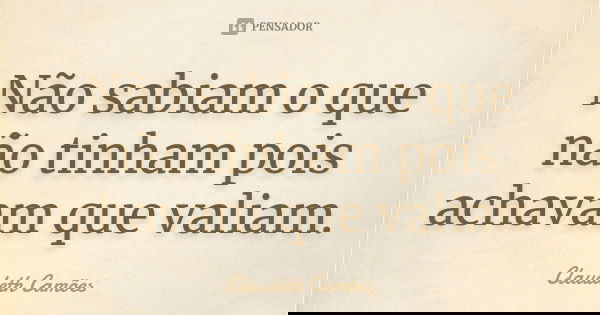 PENSADOR
Não sabiam o que
não tinham pois
achavam que valiam.
Claudeth Camões